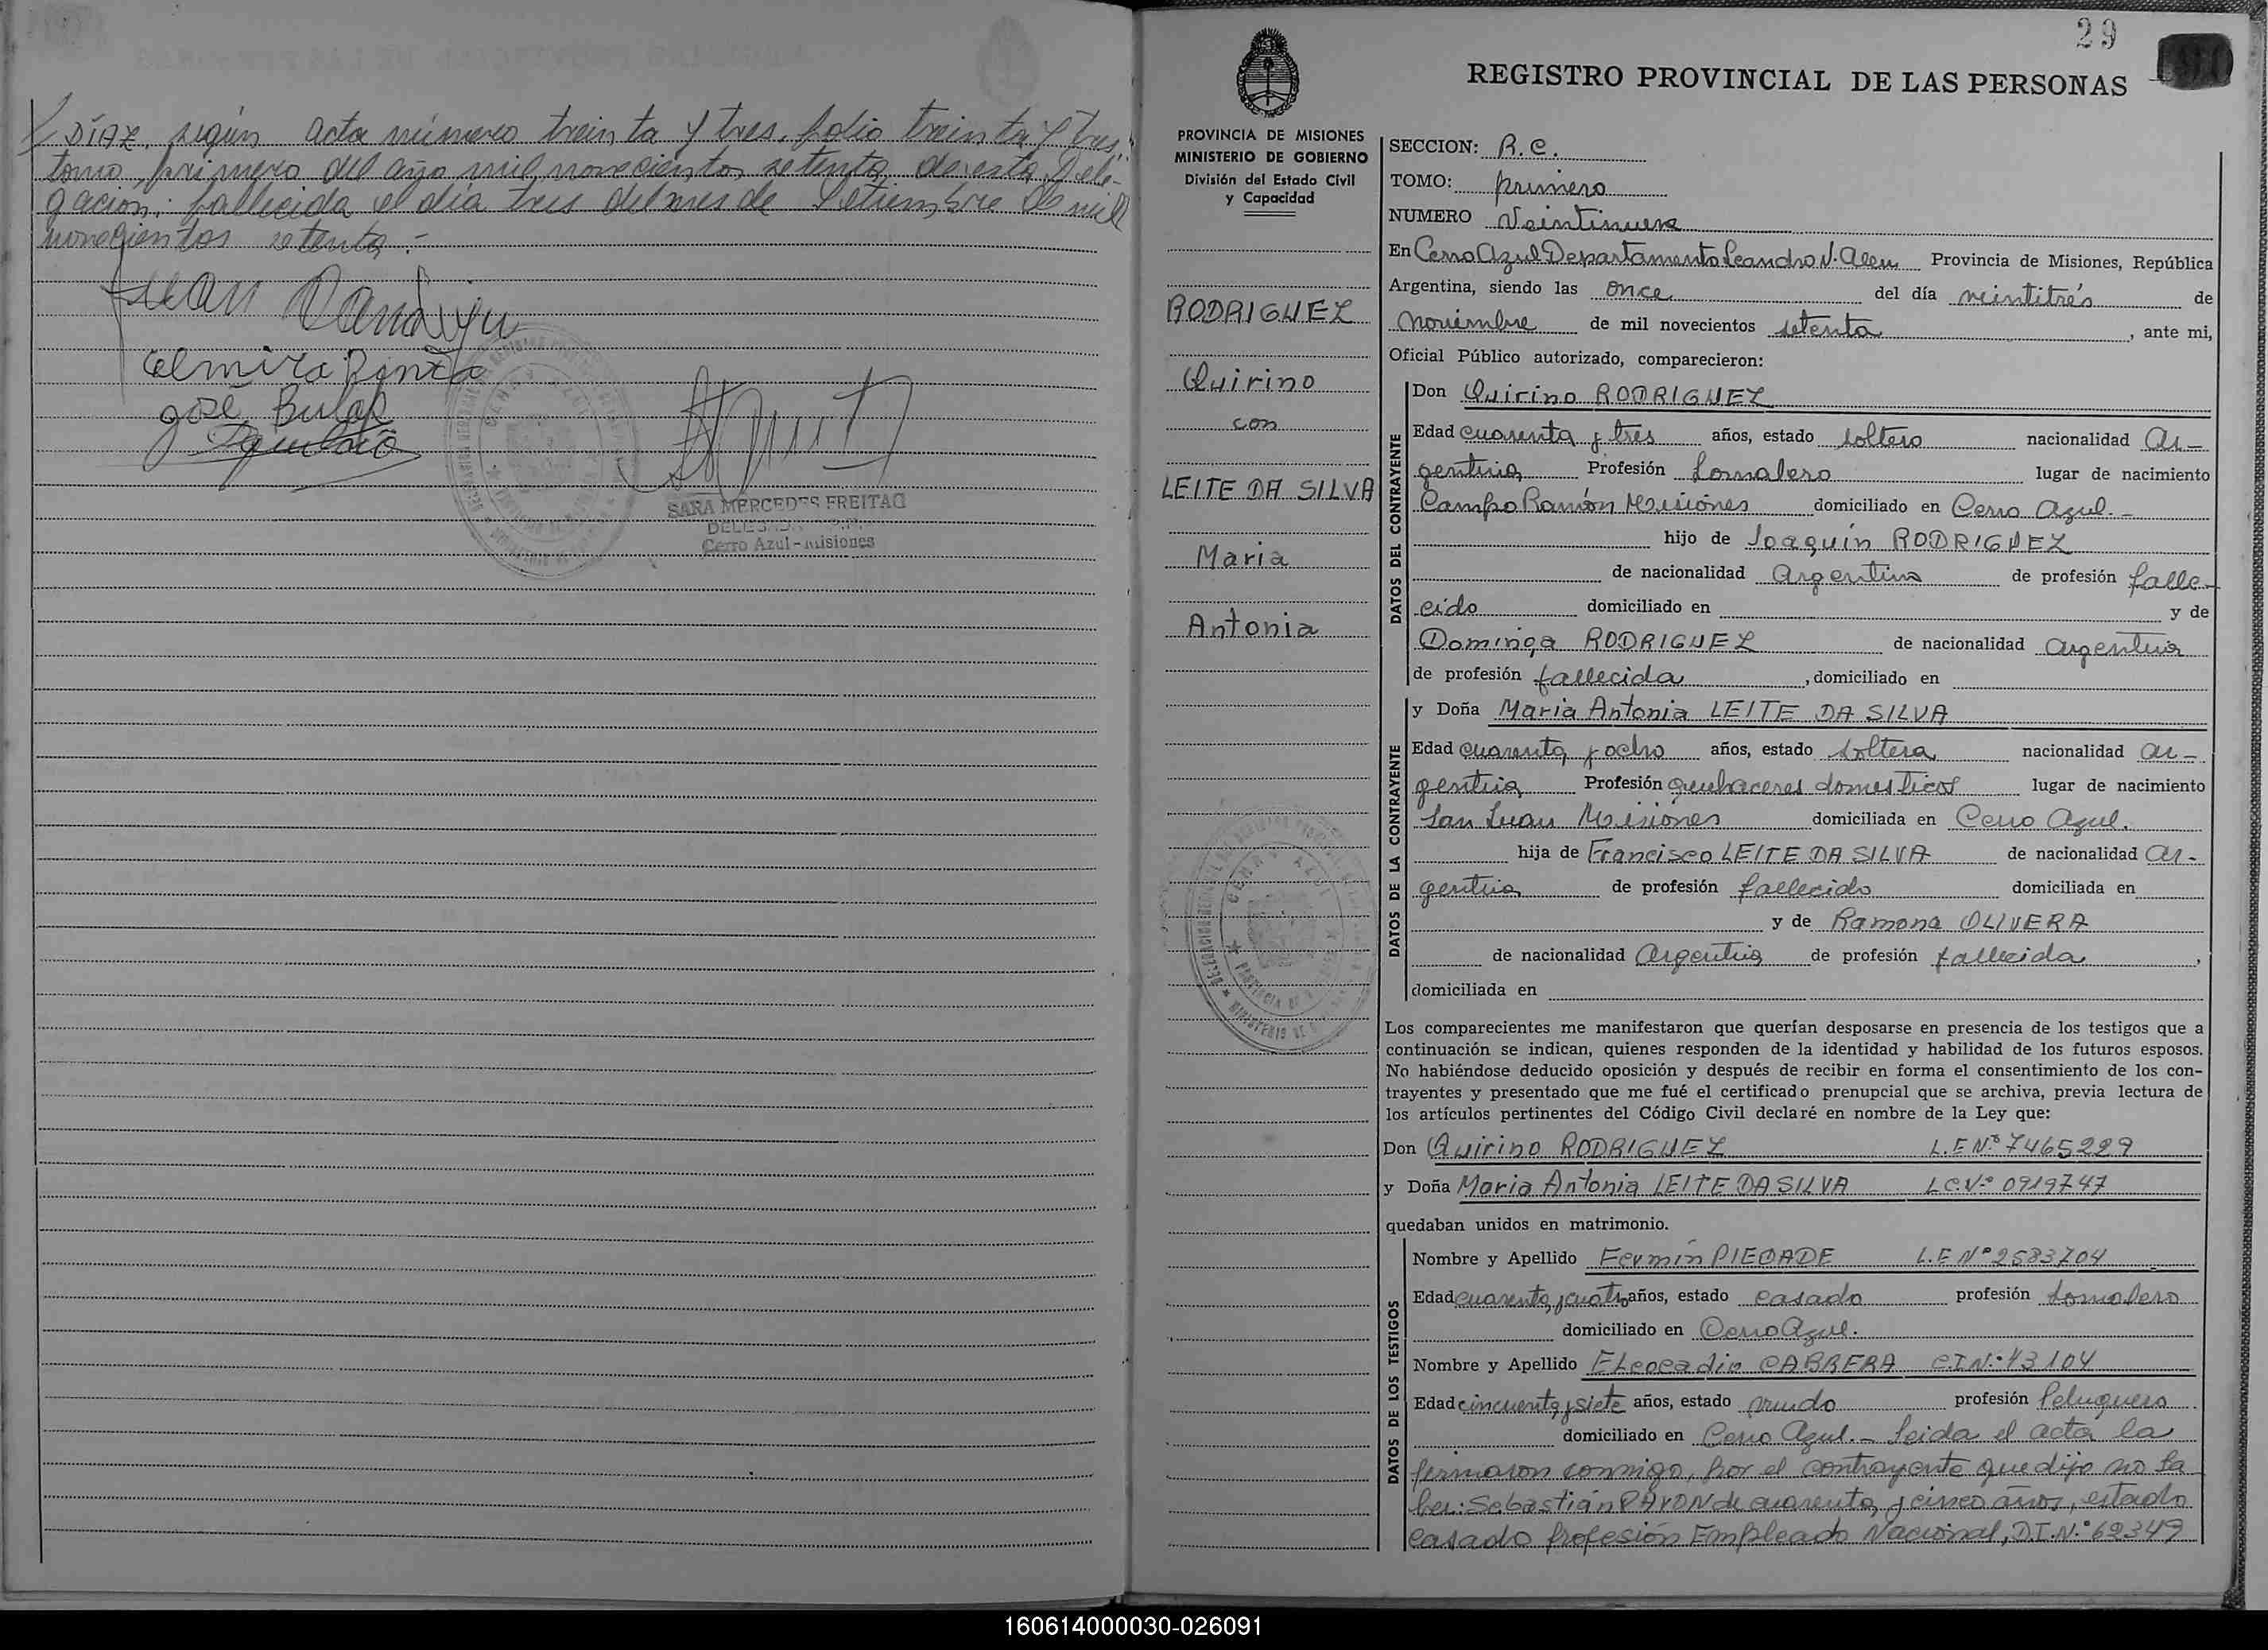 DÍAZ, según acta número treinta y tres, folio treinta y tres,
tomo primero del año mil novecientos setenta, de esta Dele-
gación; fallecida el día tres del mes de Setiembre de mil
novecientos setenta.-
Juan
José
SARA MERCEDES FREITAG
Cerro Azul - Misiones
29
REGISTRO PROVINCIAL DE LAS PERSONAS
PROVINCIA DE MISIONES
MINISTERIO DE GOBIERNO
División del Estado Civil
y Capacidad
RODRIGUEZ
Quirino
con
LEITE DA SILVA
Maria
Antonia
CERRO AZUL
SECCION: R.C.
TOMO: primero
NUMERO Veintinueve
En Cerro Azul Departamento Leandro N. Alem Provincia de Misiones, República
Argentina, siendo las once del día veintitrés de
noviembre de mil novecientos setenta, ante mi,
Oficial Público autorizado, comparecieron:
DATOS DEL CONTRAYENTE
Don Quirino RODRIGUEZ
Edad cuarenta y tres años, estado soltero nacionalidad Ar-
gentina Profesión Jornalero lugar de nacimiento
Campo Ramón Misiones domiciliado en Cerro Azul.-
hijo de Joaquín RODRIGUEZ
de nacionalidad Argentina de profesión falle-
cido domiciliado en y de
Dominga RODRIGUEZ de nacionalidad argentina
de profesión fallecida, domiciliado en
DATOS DE LA CONTRAYENTE
y Doña Maria Antonia LEITE DA SILVA
Edad cuarenta y ocho años, estado soltera nacionalidad ar-
gentina Profesión quehaceres domesticos lugar de nacimiento
San Juan Misiones domiciliada en Cerro Azul.
hija de Francisco LEITE DA SILVA de nacionalidad ar-
gentina de profesión fallecido domiciliada en
y de Ramona OLIVERA
de nacionalidad Argentina de profesión fallecida,
domiciliada en
Los comparecientes me manifestaron que querían desposarse en presencia de los testigos que a
continuación se indican, quienes responden de la identidad y habilidad de los futuros esposos.
No habiéndose deducido oposición y después de recibir en forma el consentimiento de los con-
trayentes y presentado que me fué el certificado prenupcial que se archiva, previa lectura de
los artículos pertinentes del Código Civil declaré en nombre de la Ley que:
Don Quirino RODRIGUEZ L.E Nº 7465229
y Doña Maria Antonia LEITE DA SILVA L.C Nº 0919747
quedaban unidos en matrimonio.
DATOS DE LOS TESTIGOS
Nombre y Apellido Fermín PIEDADE L.E Nº 2583704
Edad cuarenta y cuatro años, estado casado profesión Jornalero
domiciliado en Cerro Azul.
Nombre y Apellido ELeocadio CABRERA C.I.N.º 43104
Edad cincuenta y siete años, estado viudo profesión Peluquero
domiciliado en Cerro Azul.- Leida el acta la
firmaron conmigo, por el contrayente que dijo no sa
ber: Sebastián PAVON de cuarenta y cinco años, estado
casado profesión Empleado Nacional, D.I.N.º 62349
160614000030-026091